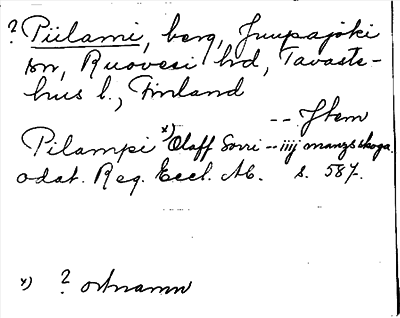 ? Piilami, berg, Juupajoki
sn, Ruovesi hd, Tavaste-
hus l., Finland
-- Item
Pilampi x) Olaff Sorri -- iiij manzskoga.
odat. Reg. Eccl. Ab. s. 587.
x) ? ortnamn